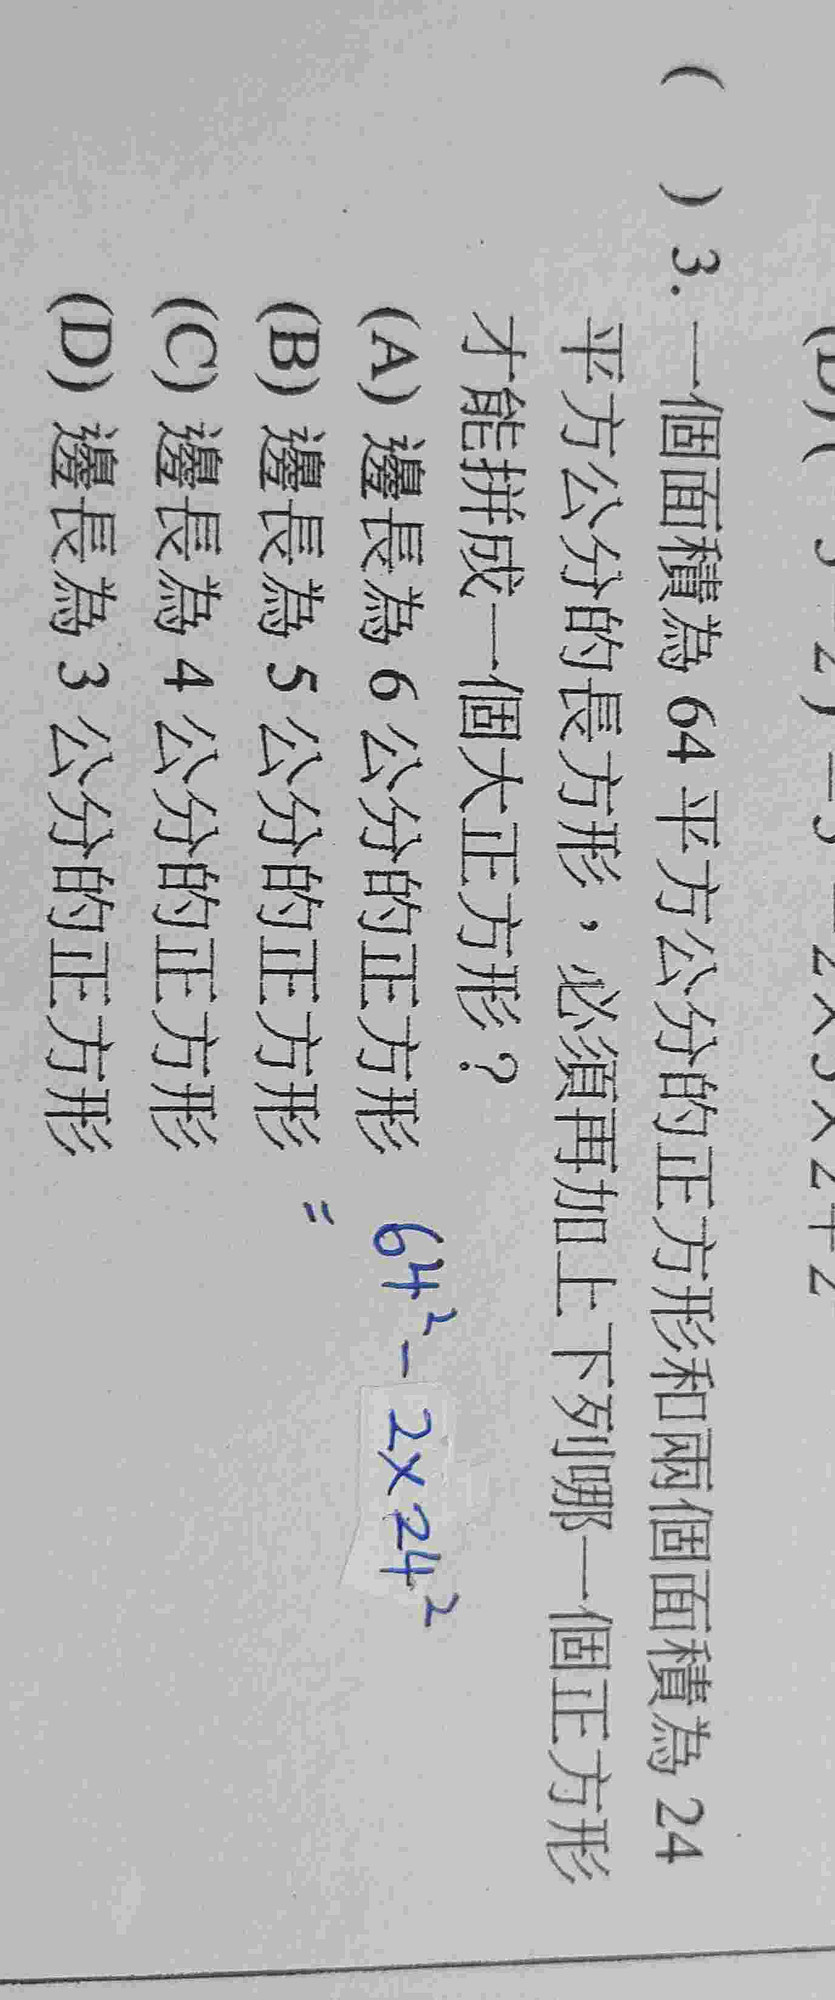 ( ) 3. 一個面積為 64 平方公分的正方形和兩個面積為 24
平方公分的長方形，必須再加上下列哪一個正方形
才能拼成一個大正方形？
(A) 邊長為 6 公分的正方形
(B) 邊長為 5 公分的正方形
(C) 邊長為 4 公分的正方形
(D) 邊長為 3 公分的正方形
64² - 2×24²
=